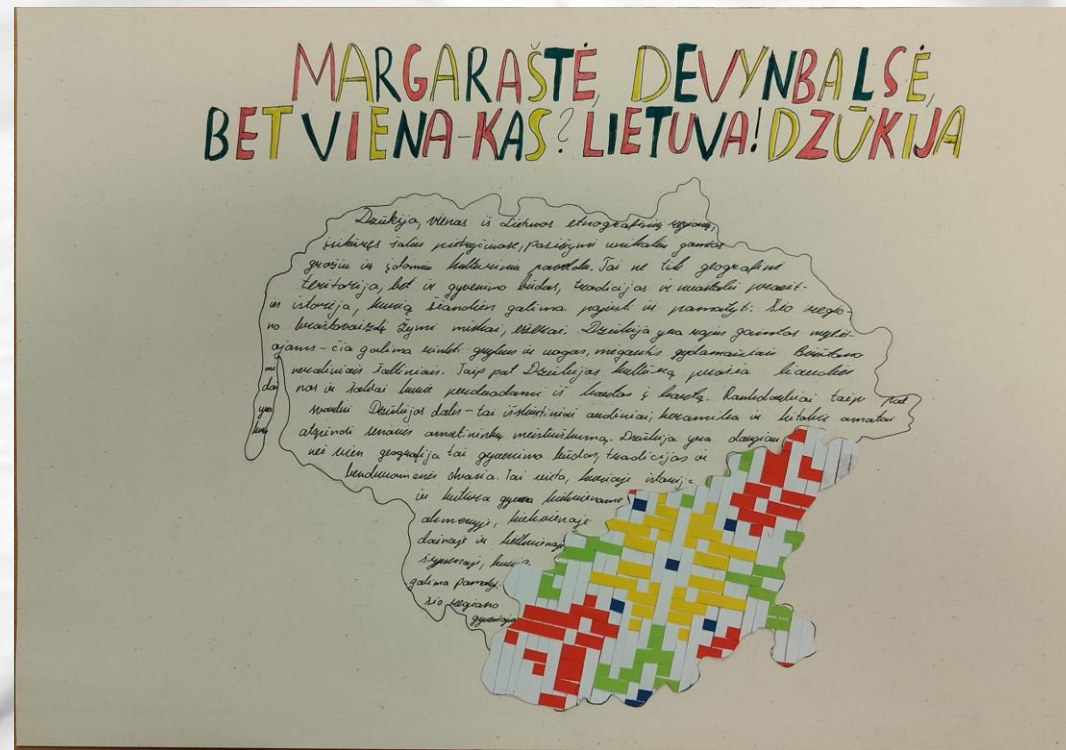 MARGARAŠTĖ, DEVYNBALSĖ,
BET VIENA-KAS? LIETUVA! DZŪKIJA
Dzūkija, vienas iš Lietuvos etnografinių regionų,
įsikūręs šalies pietryčiuose, pasižymi unikaliu gamtos
grožiu ir įdomiu kultūriniu paveldu. Tai ne tik geografinė
teritorija, bet ir gyvenimo būdas, tradicijos ir nuostabi
istorija, kurią šiandien galima pajusti ir pamatyti. Šio regio-
no kraštovaizdį žymi miškai, ežerai. Dzūkija yra rojus gamtos mylėt-
ojams - čia galima rinkti grybus ir uogas, mėgautis gydomaisiais
mineraliniais šaltiniais. Taip pat Dzūkijos kultūrą puošia liaudies
dai
nos ir šokiai kurie perduodami iš kartos į kartą. Rankdarbiai taip pat
yra
svarbi Dzūkijos dalis - tai išskirtiniai audiniai, keramika ir kitokie amatai
atspindi senovės amatininkų meistriškumą. Dzūkija yra daugiau
nei vien geografija tai gyvenimo būdas, tradicijos ir
bendruomenės dvasia. Tai vieta, kurioje istorija
ir kultūra gyva kiekviename
akmenyje, kiekvienoje
dainoje ir kiekvienoje
šypsenoje, kurią
galima pamatyti
šio regiono